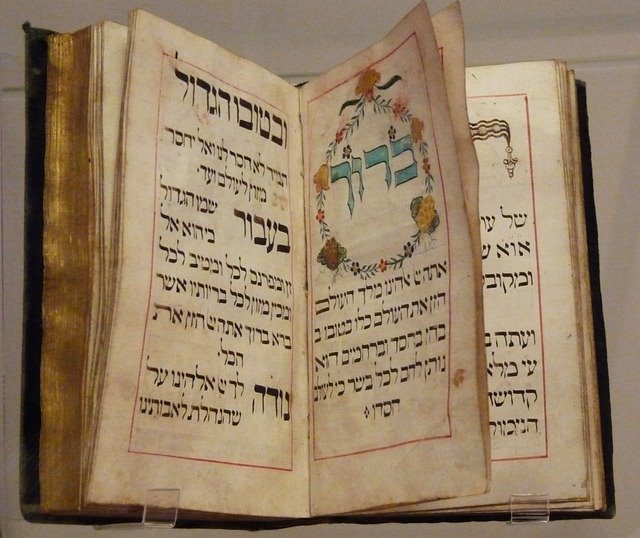 של
ומקובל
ועתה
ברוך
אתה אהינו מלך העולם
הזן את העולם כלו בטובו ב
בחן בחסד וברחמים הוא
נותן לחם לכל בשר כי לעולם
חסדו
ובטובו הגדול
תמיד לא חסר לנו ואל יחסר
מזון לעולם ועד
בעבור שמו הגדול
כי הוא אל
זן ומפרנס לכל ומטיב לכל
ומכין מזון לכל בריותיו אשר
ברא ברוך אתה הזן את
הכל
נודה לך אלהינו על
שהנחלת לאבותינו